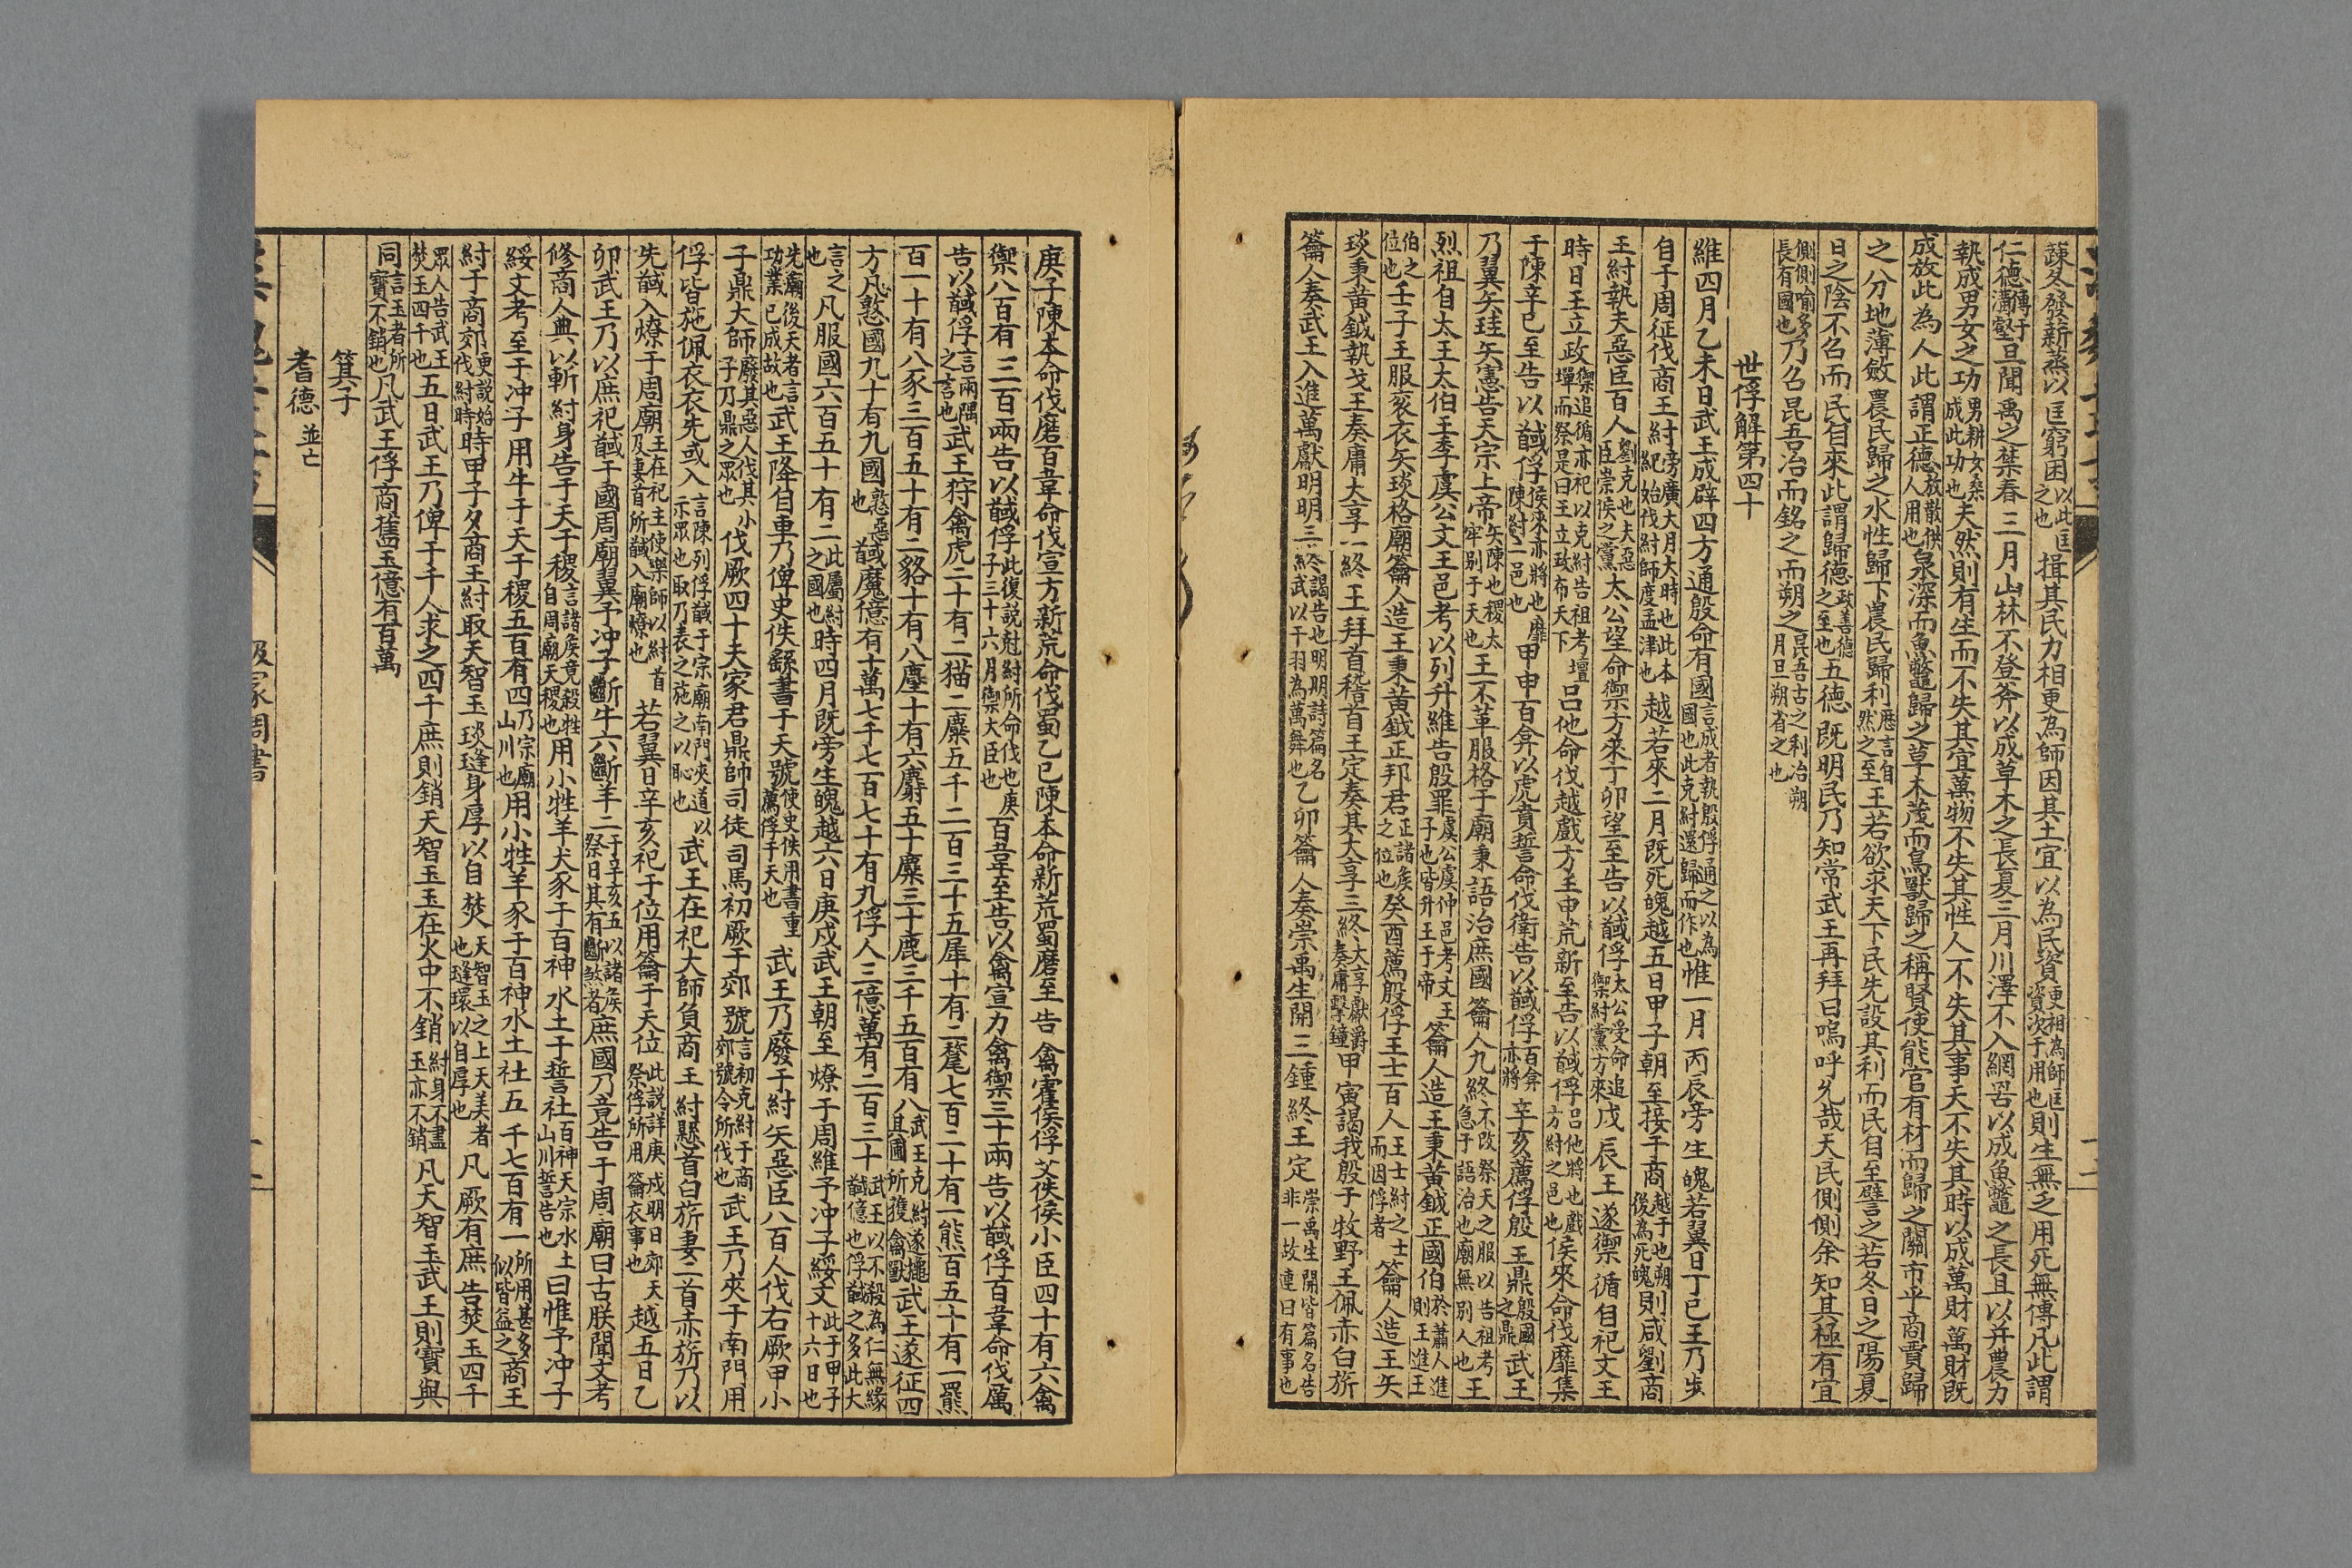 疎冬發薪蒸以匡窮困以此匡之也揖其民力相更為師因其土宜以為民資更相為師匡資次于用也則生無乏用死無傳凡此謂
仁德傳于溝壑旦聞禹之禁春三月山林不登斧以成草木之長夏三月川澤不入網罟以成魚鼈之長且以并農力
執成男女之功男耕女桑成此功也夫然則有生而不失其宜萬物不失其性人不失其事天不失其時以成萬財萬財既
成放此為人此謂正德放散供人用也泉深而魚鼈歸之草木茂而鳥獸歸之稱賢使能官有材而歸之關市平商賈歸
之分地薄斂農民歸之水性歸下農民歸利應言自然之至王若欲求天下民先設其利而民自至譬之若冬日之陽夏
日之陰不召而民自來此謂歸德政善德之至也五德既明民乃知常武王再拜曰嗚呼允哉天民側側余知其極有宜
側側喻多長有國也乃召昆吾冶而銘之而朔之昆吾古之利冶朔月旦朔省之也
世俘解第四十
維四月乙未日武王成辟四方通殷命有國言成者執殷俘通之以為國也此克紂還歸而作也惟一月丙辰旁生魄若翼日丁巳王乃步
自于周征伐商王紂旁廣大月大時也此本紀始伐紂師度孟津也越若來二月既死魄越五日甲子朝至接于商越于也朔後為死魄則咸劉商
王紂執夫惡臣百人劉克也夫惡臣崇侯之黨太公望命禦方來丁卯望至告以馘俘太公受命追禦紂黨方來戊辰王遂禦循自祀文王
時日王立政禦追循亦祀以克紂告祖考壇墠而祭是日王立政布天下呂他命伐越戲方壬申荒新至告以馘俘呂他將也戲方紂之邑也侯來命伐靡集
于陳辛巳至告以馘俘侯來亦將也靡陳紂二邑也甲申百弇以虎賁誓命伐衛告以馘俘百弇亦將辛亥薦俘殷王鼎殷國之鼎武王
乃翼矢珪矢憲告天宗上帝矢陳也稷太牢别于天也王不革服格于廟秉語治庶國籥人九終不改祭天之服以告祖考急于語治也廟無别人也王
烈祖自太王太伯王季虞公文王邑考以列升維告殷罪虞公虞仲邑考文王子也皆升王于帝籥人造王秉黃鉞正國伯於籥人進則王進王
伯之位也壬子王服衮衣矢琰格廟籥人造王秉黃鉞正邦君正諸侯之位也癸酉薦殷俘王士百人王士紂之士而囚俘者籥人造王矢
琰秉黃鉞執戈王奏庸大享一終王拜首稽首王定奏其大享三終大享獻爵奏庸擊鐘甲寅謁我殷于牧野王佩赤白旂
籥人奏武王入進萬獻明明三終謁告也明明詩篇名武以干羽為萬舞也乙卯籥人奏崇禹生開三鍾終王定崇禹生開皆篇名告非一故連日有事也
庚子陳本命伐磨百韋命伐宣方新荒命伐蜀乙巳陳本命新荒蜀磨至告禽霍侯俘艾佚侯小臣四十有六禽
禦八百有三百兩告以馘俘此復說尅紂所命伐也庚子三十六月禦大臣也百韋至告以禽宣方禽禦三十兩告以馘俘百韋命伐厲
告以馘俘言兩隅之言也武王狩禽虎二十有二猫二麋五千二百三十五犀十有二氂七百二十有一熊百五十有一羆
百一十有八豕三百五十有二貉十有八麈十有六麝五十麋三十鹿三千五百有八武王克紂遂擅其圃所獲禽獸武王遂征四
方凡憝國九十有九國憝惡也馘魔億有十萬七千七百七十有九俘人三億萬有二百三十武王以不殺為仁無緣馘億也俘馘之多此大
言之也凡服國六百五十有二此屬紂之國也時四月既旁生魄越六日庚戌武王朝至燎于周維予冲子綏文此于甲子十六日也
先廟後天者言功業已成故也武王降自車乃俾史佚繇書于天號使史佚用書重薦俘于天也武王乃廢于紂矢惡臣八百人伐右厥甲小
子鼎大師廢其惡人伐其小子乃鼎之眾也伐厥四十夫家君鼎帥司徒司馬初厥于郊號言初克紂于商郊號令所伐也武王乃夾于南門用
俘皆施佩衣衣先或入言陳列俘馘于宗廟南門夾道以示眾也取乃衣之施之以恥也武王在祀大師負商王紂懸首白旂妻二首赤旂乃以
先馘入燎于周廟王在祀主使樂師以紂首及妻首所馘入廟燎也若翼日辛亥祀于位用籥于天位此說詳庚戌明日郊天祭俘所用籥衣事也越五日乙
卯武王乃以庶祀馘于國周廟翼予冲子斷牛六斷羊二于辛亥五以諸侯祭日其有斷煞者庶國乃竟告于周廟曰古朕聞文考
修商人典以斬紂身告于天于稷言諸侯竟殺牲自周廟天稷也用小牲羊犬豕于百神水土于誓社百神天宗水土山川誓告也曰惟予冲子
綏文考至于冲子用牛于天于稷五百有四乃宗廟山川也用小牲羊豕于百神水土社五千七百有一所用甚多似皆益之商王
紂于商郊更說始伐紂時時甲子夕商王紂取天智玉琰𤩴身厚以自焚天智玉之上天美者也縫環以自厚也凡厥有庶告焚玉四千
眾人告武王焚玉四千也五日武王乃俾于千人求之四千庶則銷天智玉玉在火中不銷紂身不盡玉亦不銷凡天智玉武王則寶與
同言玉者所寶不銷也凡武王俘商舊玉億有百萬
箕子
耆德並亡
汲冢周書